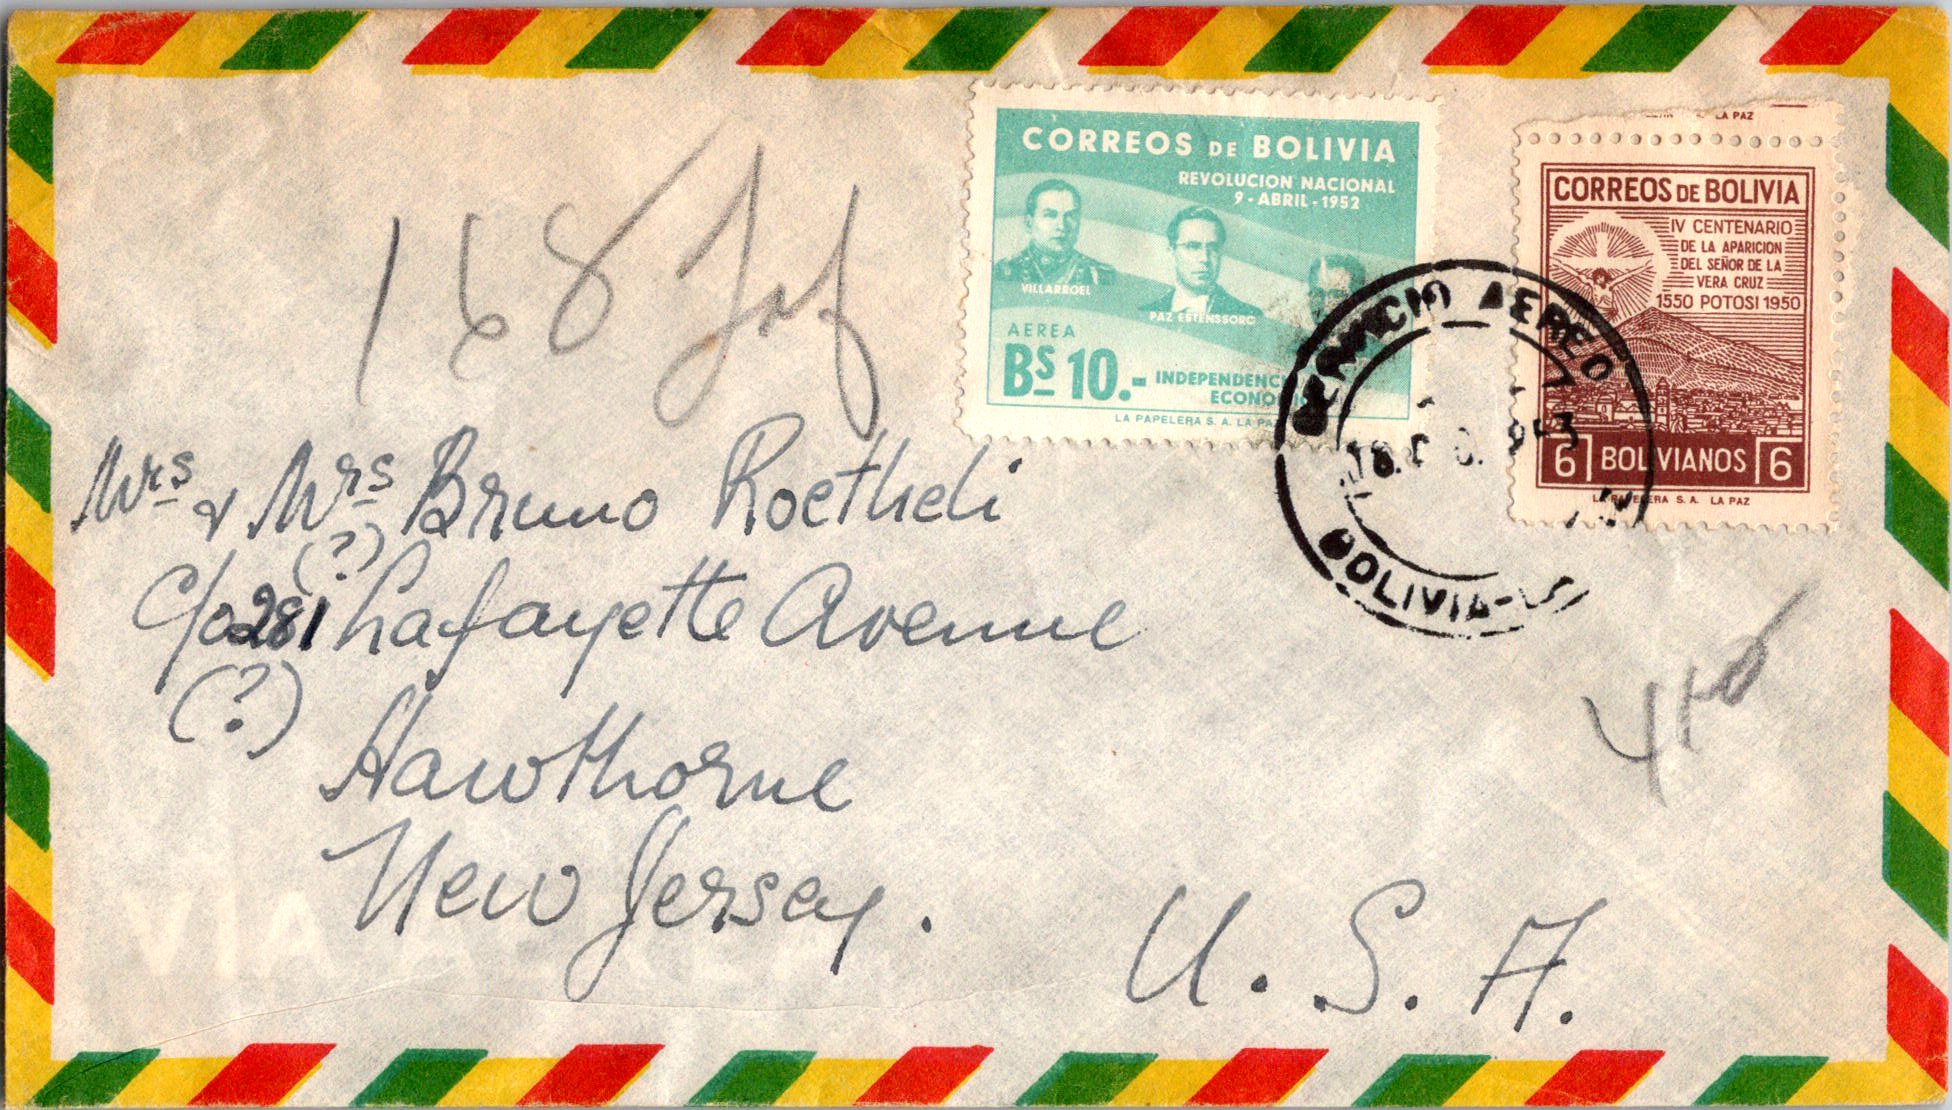 CORREOS DE BOLIVIA
REVOLUCION NACIONAL
9 - ABRIL - 1952
VILLARROEL
PAZ ESTENSSORO
AEREA
Bs 10.-
INDEPENDENCI
ECONO
LA PAPELERA S. A. LA PA
LA PAZ
CORREOS DE BOLIVIA
IV CENTENARIO
DE LA APARICION
DEL SEÑOR DE LA
VERA CRUZ
1550 POTOSI 1950
6 BOLIVIANOS 6
LA PAPELERA S. A. LA PAZ
SERVICIO AEREO
BOLIVIA
168
Mrs & Mrs Bruno Roetheli
(?)
c/o 281 Lafayette Avenue
(?)
Hawthorne
New Jersey.
U. S. A.
VIA